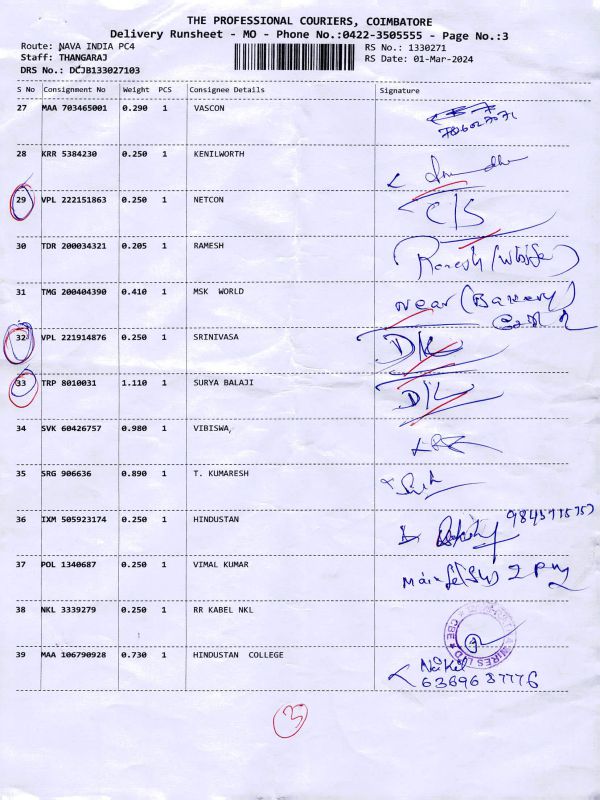 THE PROFESSIONAL COURIERS, COIMBATORE
Delivery Runsheet - MO - Phone No.:0422-3505555 - Page No.:3
Route: NAVA INDIA PC4 RS No.: 1330271
Staff: THANGARAJ RS Date: 01-Mar-2024
DRS No.: DCJB133027103
S No Consignment No Weight PCS Consignee Details Signature
27 MAA 703465001 0.290 1 VASCON
28 KRR 5384230 0.250 1 KENILWORTH
29 VPL 222151863 0.250 1 NETCON C/S
30 TDR 200034321 0.205 1 RAMESH Ramesh
31 TMG 200404390 0.410 1 MSK WORLD Near (Bakery)
32 VPL 221914876 0.250 1 SRINIVASA D/L
33 TRP 8010031 1.110 1 SURYA BALAJI D/L
34 SVK 60426757 0.980 1 VIBISWA,
35 SRG 906636 0.890 1 T. KUMARESH
36 IXM 505923174 0.250 1 HINDUSTAN
37 POL 1340687 0.250 1 VIMAL KUMAR
38 NKL 3339279 0.250 1 RR KABEL NKL CBE
39 MAA 106790928 0.730 1 HINDUSTAN COLLEGE
6369687776
3